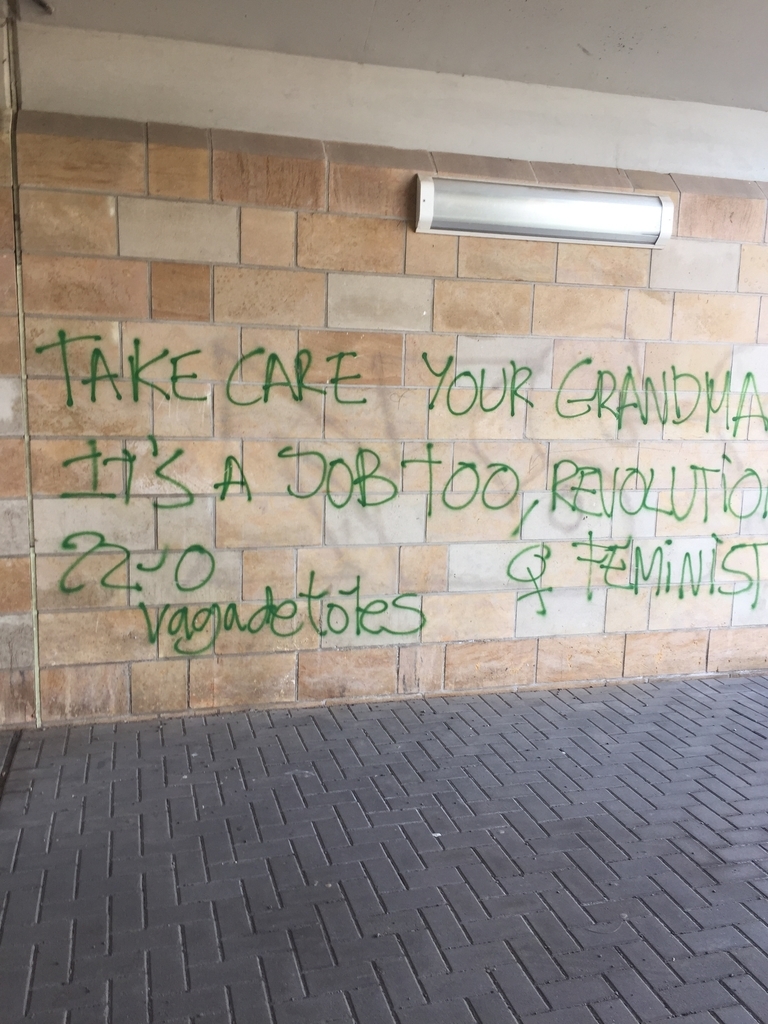 TAKE CARE YOUR GRANDMA
IT'S A JOB TOO, REVOLUTIO
22-O ♀ FEMINIST
vagadetotes